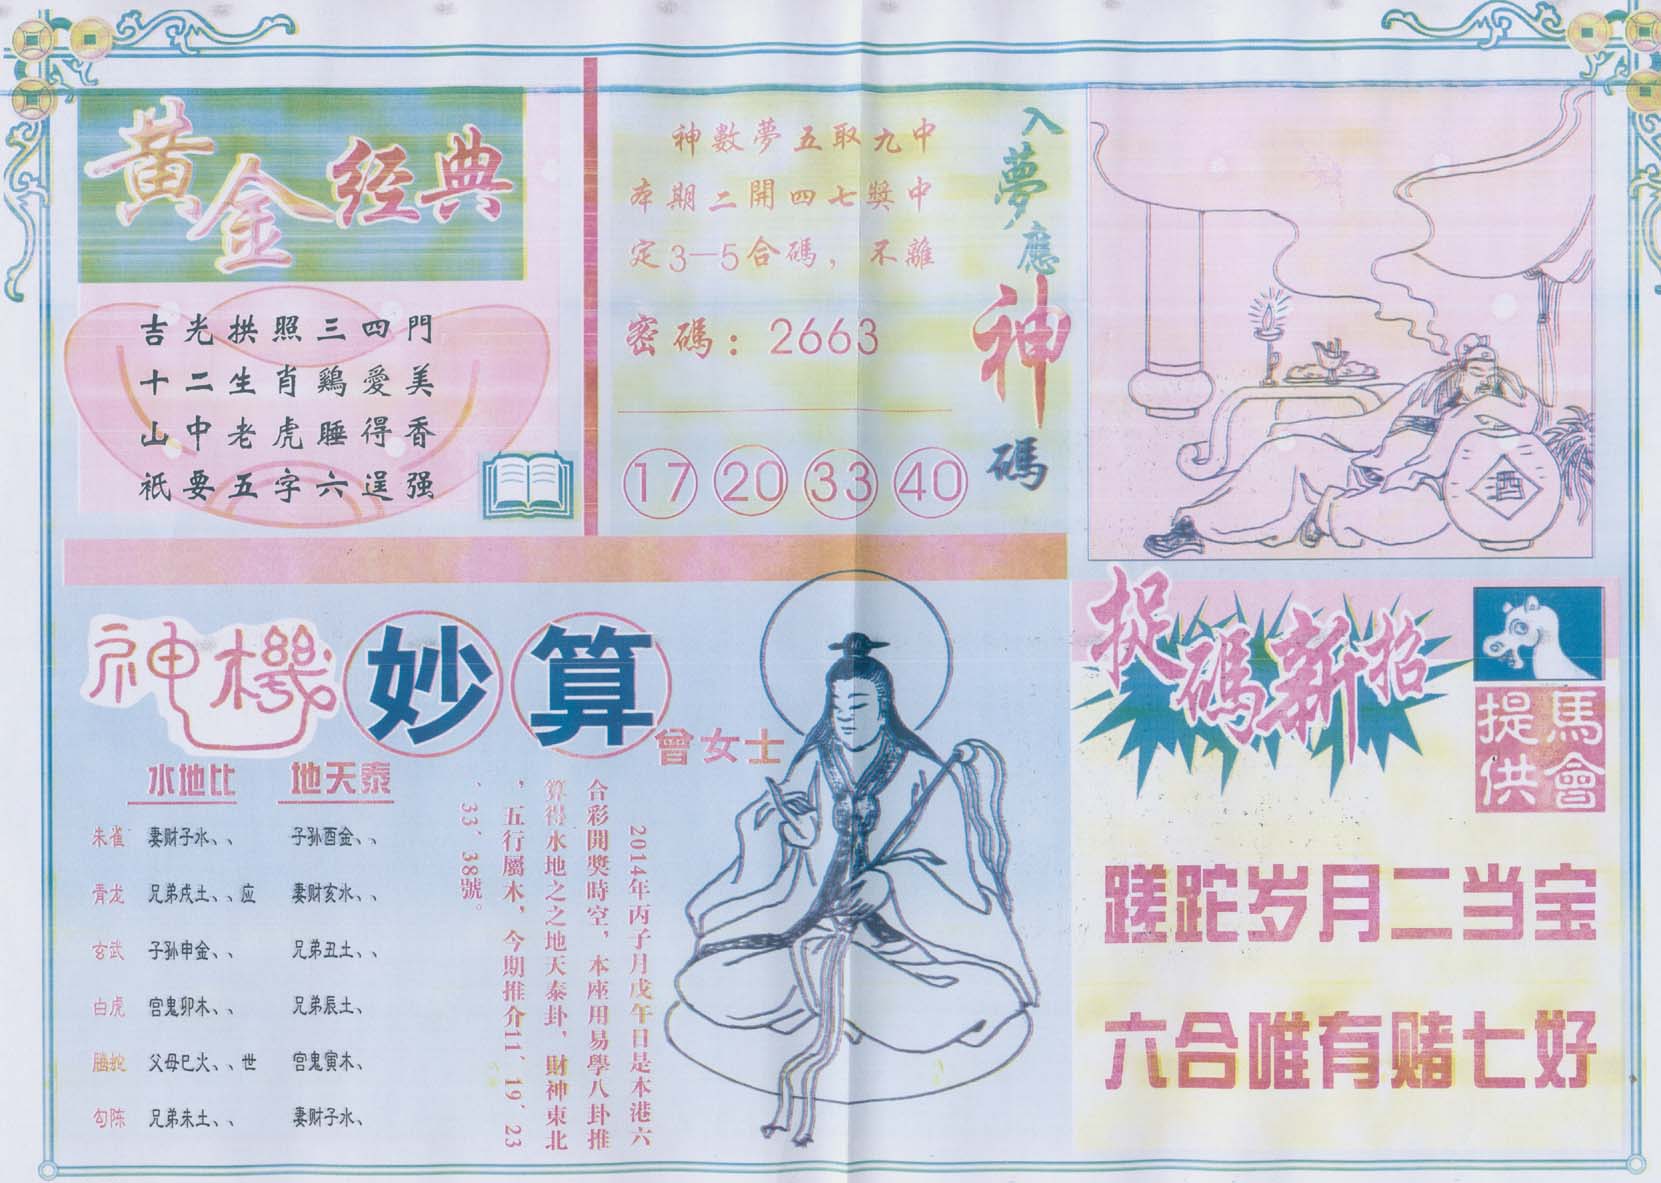 黄金经典
吉光拱照三四門
十二生肖鷄愛美
山中老虎睡得香
祇要五字六逞强
神數夢五取九中
本期二開四七獎中
定3—5合碼，不離
密碼：2663
17 20 33 40
入夢應神碼
酉
神機妙算
曾女士
水地比 地天泰
朱雀 妻财子水、、 子孙酉金、、
青龙 兄弟戌土、、应 妻财亥水、、
玄武 子孙申金、、 兄弟丑土、、
白虎 宫鬼卯木、、 兄弟辰土、
螣蛇 父母巳火、、世 宫鬼寅木、
勾陈 兄弟未土、、 妻财子水、
2014年丙子月戊午日是本港六
合彩開獎時空，本座用易學八卦推
算得水地之之地天泰卦，財神東北
，五行屬木，今期推介11、19、23
、33、38號。
捉碼新招
馬會
提供
蹉跎岁月二当宝
六合唯有赌七好